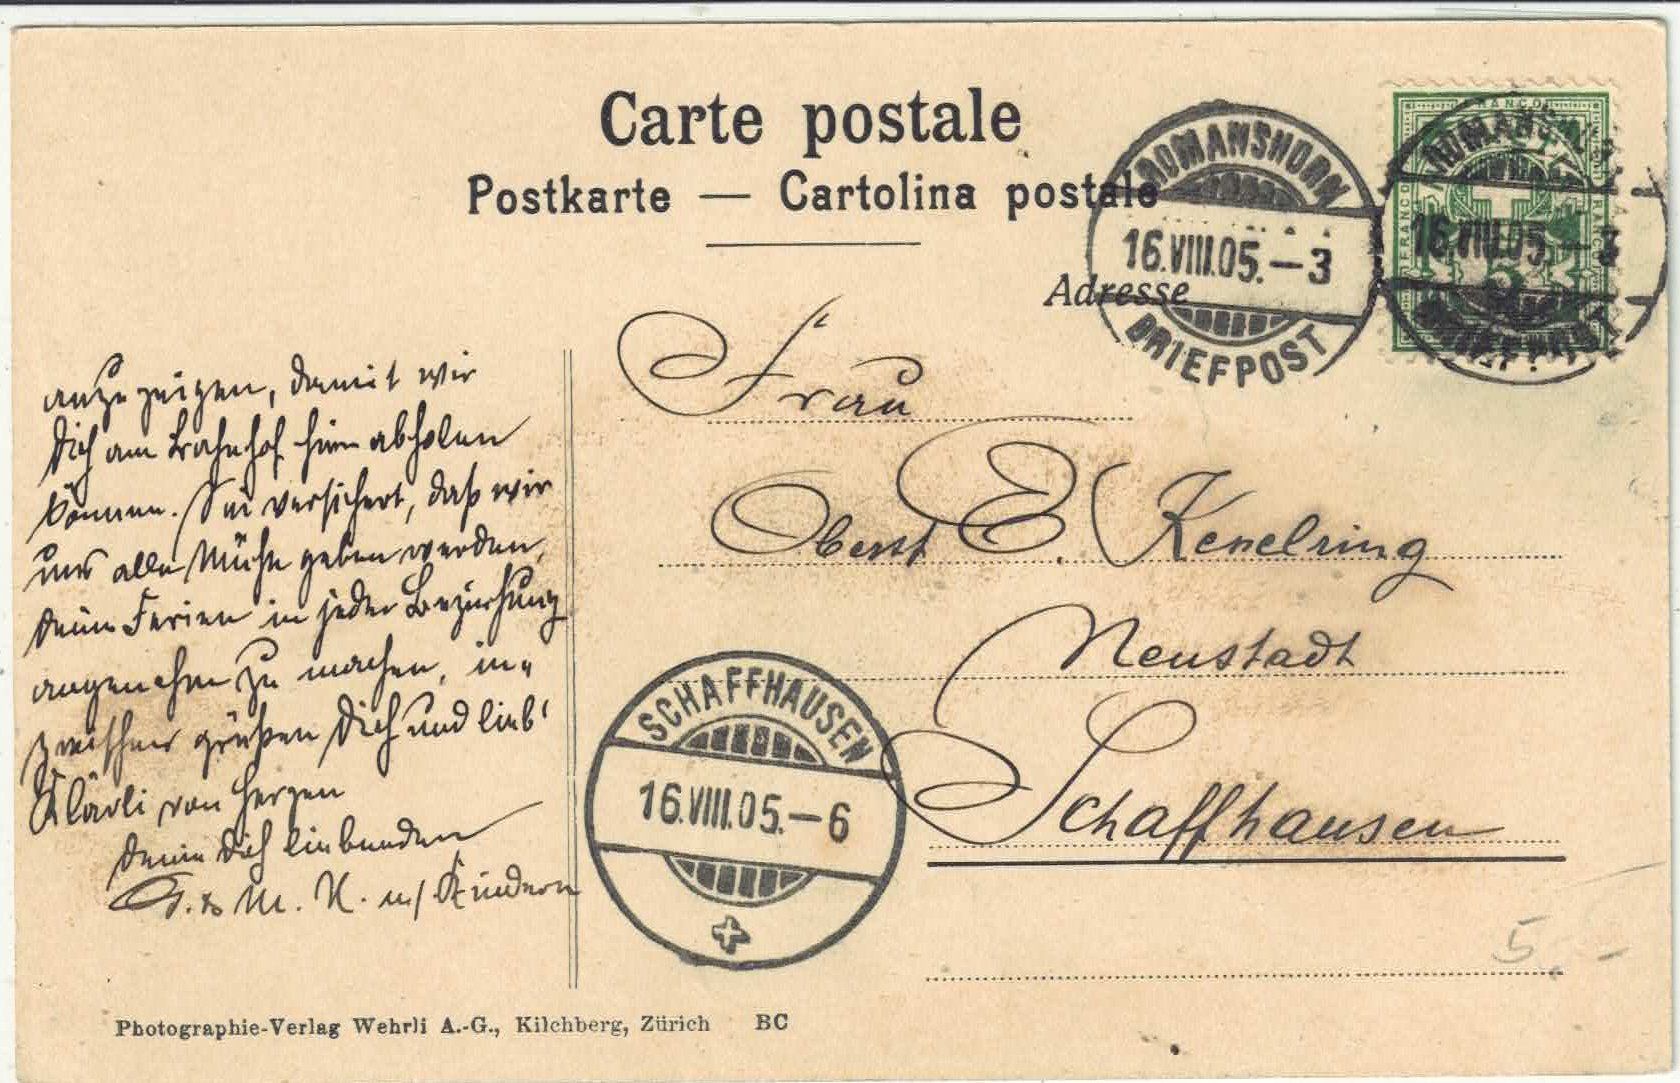 Carte postale
Postkarte — Cartolina postale
Adresse
ROMANSHORN
16.VIII.05.–3
BRIEFPOST
FRANCO
ROMANSHORN
16.VIII.05.–3
BRIEFPOST
anzuzeigen, damit wir
Dich am Bahnhof hier abholen
können. Sei versichert, daß wir
uns alle Mühe geben werden,
Deine Ferien in jeder Beziehung
angenehm zu machen, in„
zwischen grüßen Dich und lieb'
Klärli von Herzen
Deine Dich liebenden
M. K. u/ Kindern
Frau
Oberst E.
Neustadt
Schaffhausen
SCHAFFHAUSEN
16.VIII.05.–6
5.-
Photographie-Verlag Wehrli A.-G., Kilchberg, Zürich BC